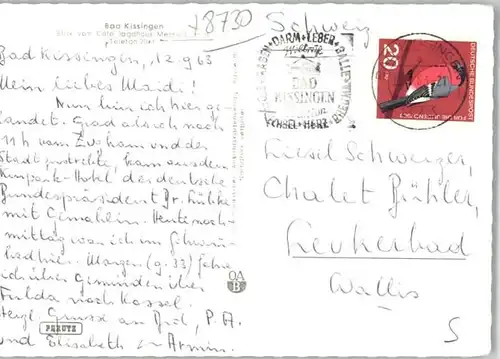 Bad Kissingen
Blick vom Café Jagdhaus Messerschmidt
Telefon
8730
Schweiz
Bad Kissingen, 12.9.63
Mein liebes Maidi!
Nun bin ich hier ge-
landet. Grad als ich nach
11 h vom Zug kam und der
Stadt zustrebte, kam aus dem
Kurpark-Hotel der deutsche
Bundespräsident Dr. Lübke
mit Gemahlin. Heute nach-
mittag war ich im Schwimm-
bad hier. Morgen fahre
ich über Gemünden über
Fulda nach Kassel.
Herzl. Grüsse an P. A.
und Elisabeth Armin.
MAGEN · DARM · LEBER · GALLE
BAD
KISSINGEN
HERZ
20
DEUTSCHE BUNDESPOST
FÜR DIE JUGEND 1963
Liesel Schweizer,
Chalet Bühler,
Leukerbad
Wallis
OA
B
PERUTZ
S